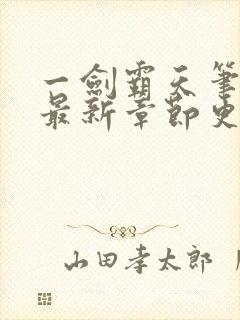 一劍霸天筆
最新章節更
山田孝太郎